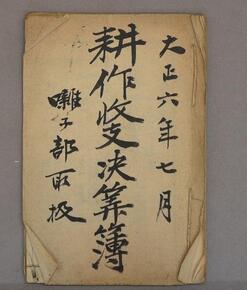 大正六年七月
耕作收支决算簿
囃子部取扱